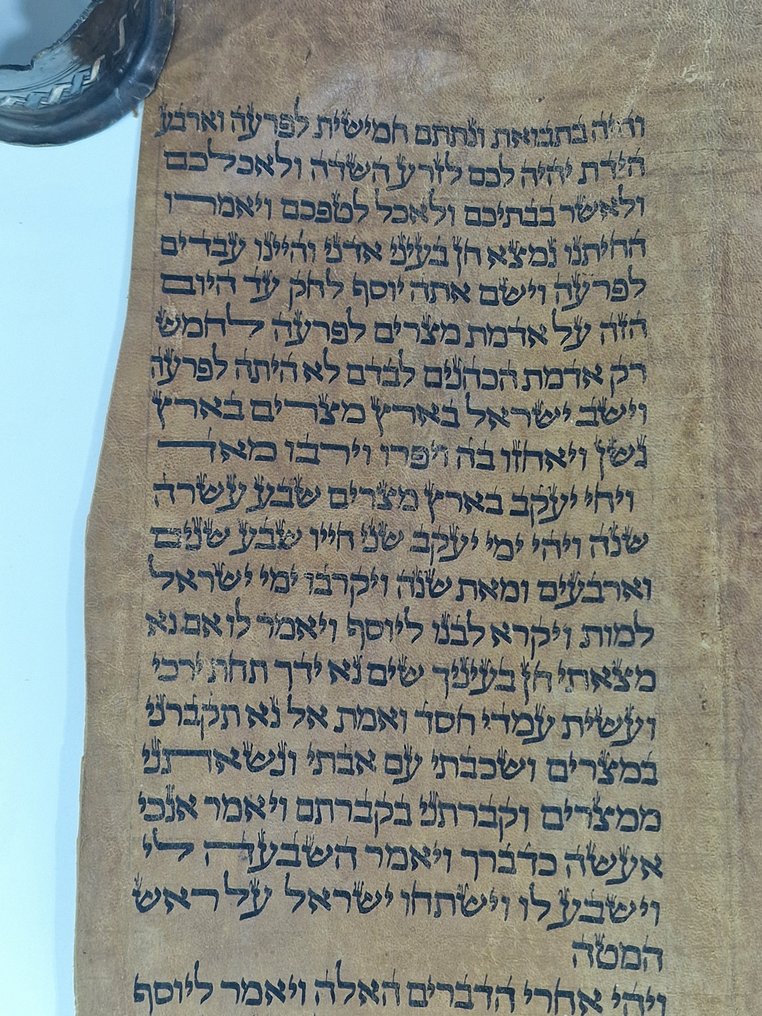 והיה בתבואת ונתתם חמישית לפרעה וארבע
הידת יהיה לכם לזרע השדה ולאכלכם
ולאשר בבתיכם ולאכל לטפכם ויאמרו
החיתנו נמצא חן בעיני אדני והיינו עבדים
לפרעה וישם אתה יוסף לחק עד היום
הזה על אדמת מצרים לפרעה לחמש
רק אדמת הכהנים לבדם לא היתה לפרעה
וישב ישראל בארץ מצרים בארץ
גשן ויאחזו בה ויפרו וירבו מאד
ויחי יעקב בארץ מצרים שבע עשרה
שנה ויהי ימי יעקב שני חייו שבע שנים
וארבעים ומאת שנה ויקרבו ימי ישראל
למות ויקרא לבנו ליוסף ויאמר לו אם נא
מצאתי חן בעיניך שים נא ידך תחת ירכי
ועשית עמדי חסד ואמת אל נא תקברני
במצרים ושכבתי עם אבתי ונשאתני
ממצרים וקברתני בקברתם ויאמר אנכי
אעשה כדברך ויאמר השבעה לי
וישבע לו וישתחו ישראל על ראש
המטה
ויהי אחרי הדברים האלה ויאמר ליוסף